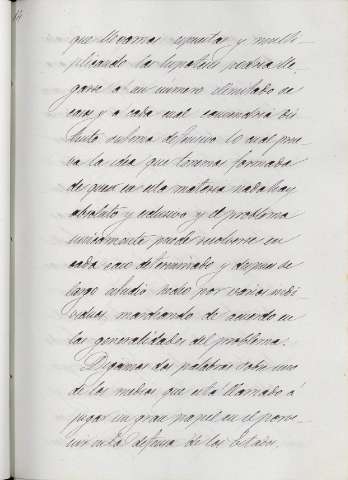 que llevamos apuntar y multi-
plicando las hipotesis podria lle-
garse á un número ilimitado de
casos y a cada cual convendria dis-
tinto sistema defensivo lo cual prue-
va la idea que tenemos formada
de que en esta materia nada hay
absoluto y exclusivo y el problema
unicamente puede resolverse en
cada caso determinado y despues de
largo estudio hecho por varios indi-
viduos, marchando de acuerdo en
las generalidades del problema.
Digamos dos palabras sobre uno
de los medios que está llamado á
jugar un gran papel en el porve-
nir en la defensa de los Estados.